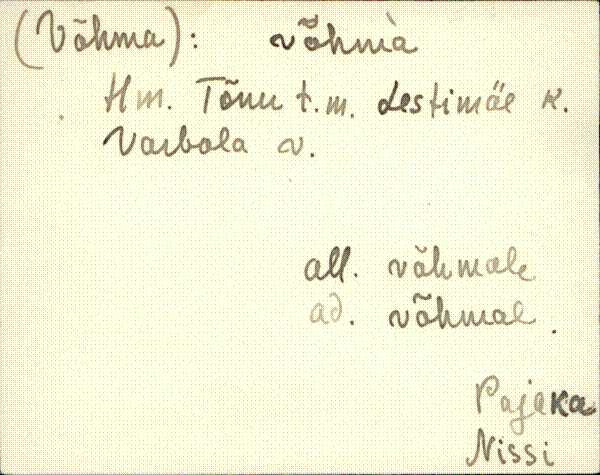 (Võhma): võhmà
Hm. Tõnu t.m. Lestimäe k.
Varbola v.
all. võhmale
ad. võhmal.
Pajaka
Nissi